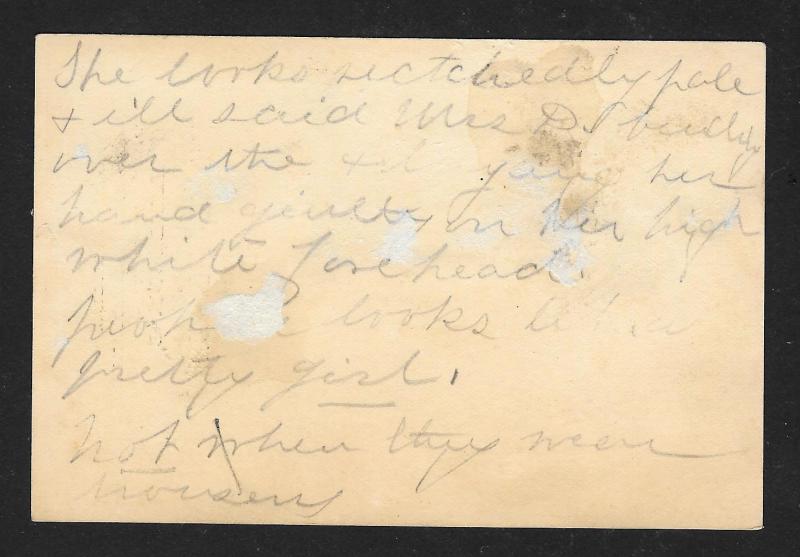 She looks retchedly pale
+ ill said Mrs D.
over the her
hand gently on her high
white forehead.
looks a
pretty girl.
not when they wear
trousers